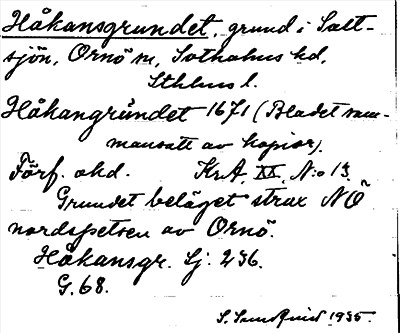 Håkansgrundet, grund i Salt-
sjön, Ornö sn, Sotholms hd,
Sthlms l.
Håkangrundet 1671 (Bladet sam-
mansatt av kopior).
Förf. okd. KrA, XX, N:o 13.
Grundet beläget strax NÖ
nordspetsen av Ornö.
Håkansgr. Sj. 236.
G. 68.
S. Sundquist 1935.